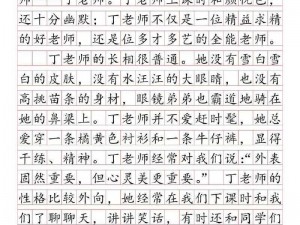 丁老师。丁老师上课时和颜悦色，
还十分幽默；丁老师不仅是一位精益求精
的好老师，还是位多才多艺的全能老师。
丁老师的长相很普通。她没有雪白雪
白的皮肤，没有水汪汪的大眼睛，也没有
高挑苗条的身材，眼镜弟弟也霸道地骑在
她的鼻梁上。丁老师并不爱赶时髦，她总
爱穿一条橘黄色衬衫和一条牛仔裤，显得
干练、精神。丁老师经常对我们说：“外表
固然重要，但心灵美更重要。”丁老师的
性格比较外向，她经常在我们下课时和我
们了聊聊天，讲讲笑话，有时还和同学们